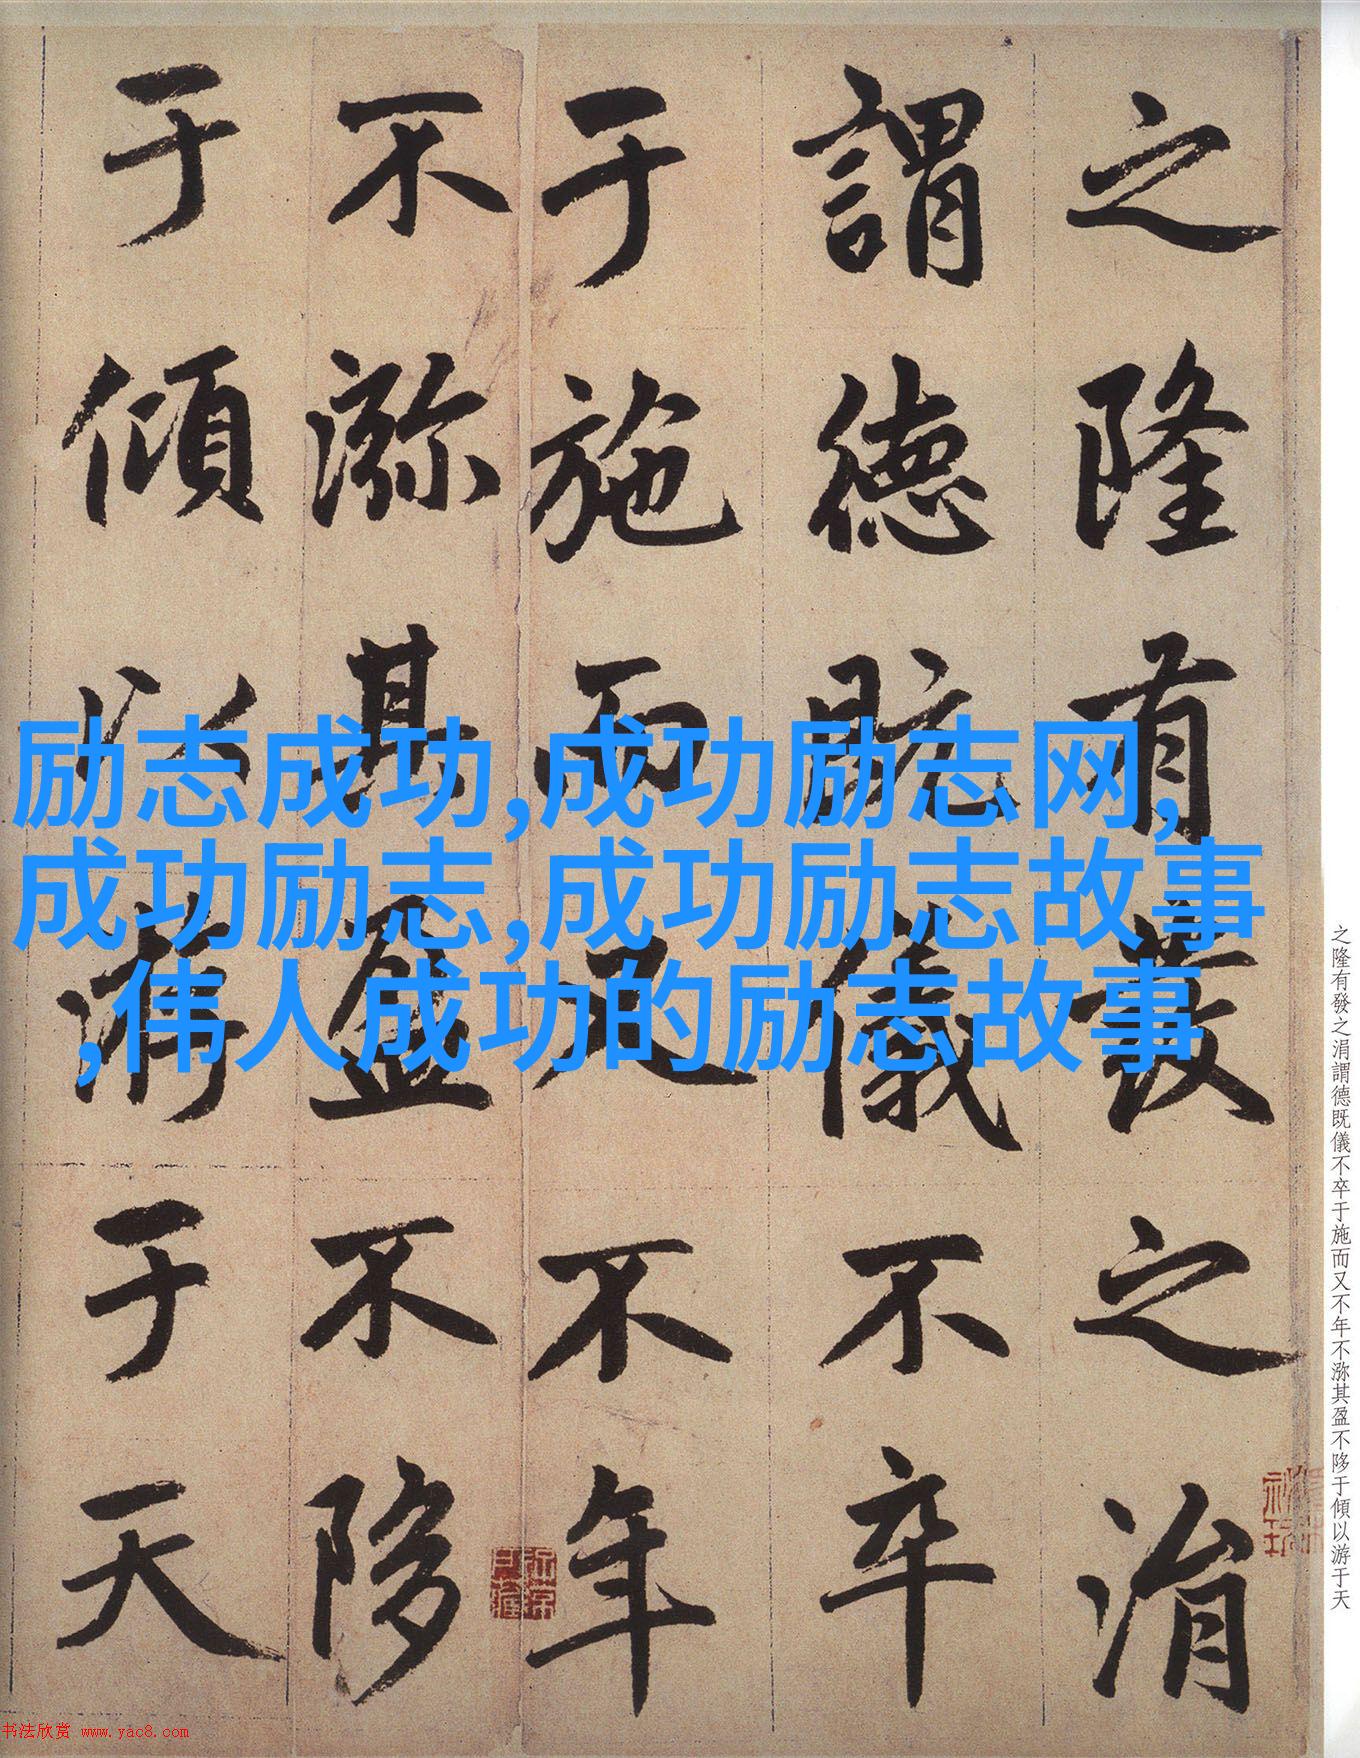 之隆有發之涓
謂德既儀不卒
于施而又不年
不瀰其盈不陊
于傾以游于天
励志成功,成功励志网,
成功励志,成功励志故事
,伟人成功的励志故事
之隆有發之涓謂德既儀不卒于施而又不年不瀰其盈不陊于傾以游于天
书法欣赏 www.yac8.com